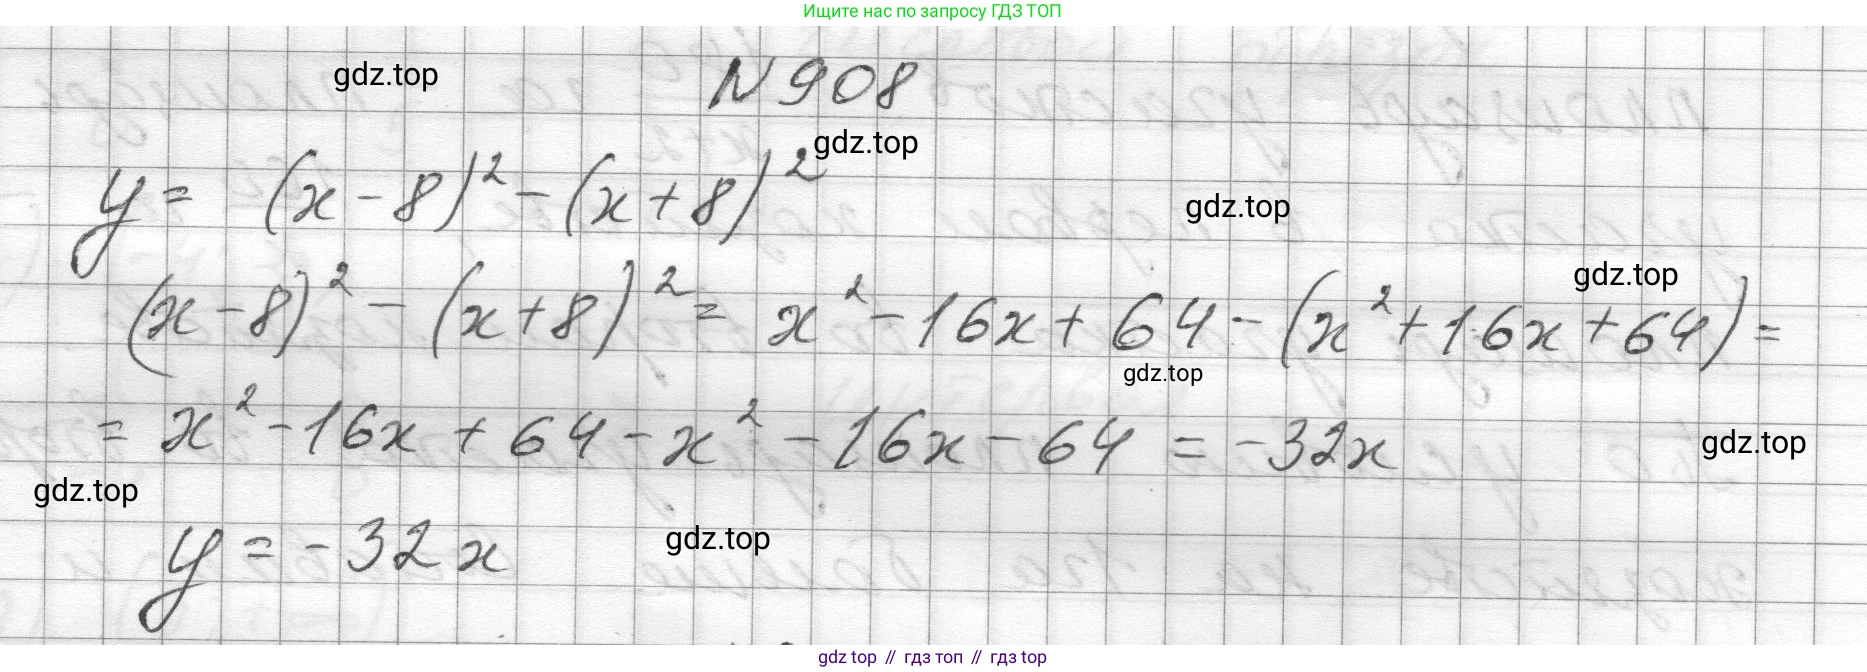 Ищите нас по запросу ГДЗ ТОП
gdz.top
N 908
gdz.top
y = (x - 8)² - (x + 8)²
gdz.top
gdz.top
(x - 8)² - (x + 8)² = x² - 16x + 64 - (x² + 16x + 64) =
gdz.top
= x² - 16x + 64 - x² - 16x - 64 = -32x
gdz.top
gdz.top
y = -32x
gdz.top
gdz top // гдз топ // gdz top